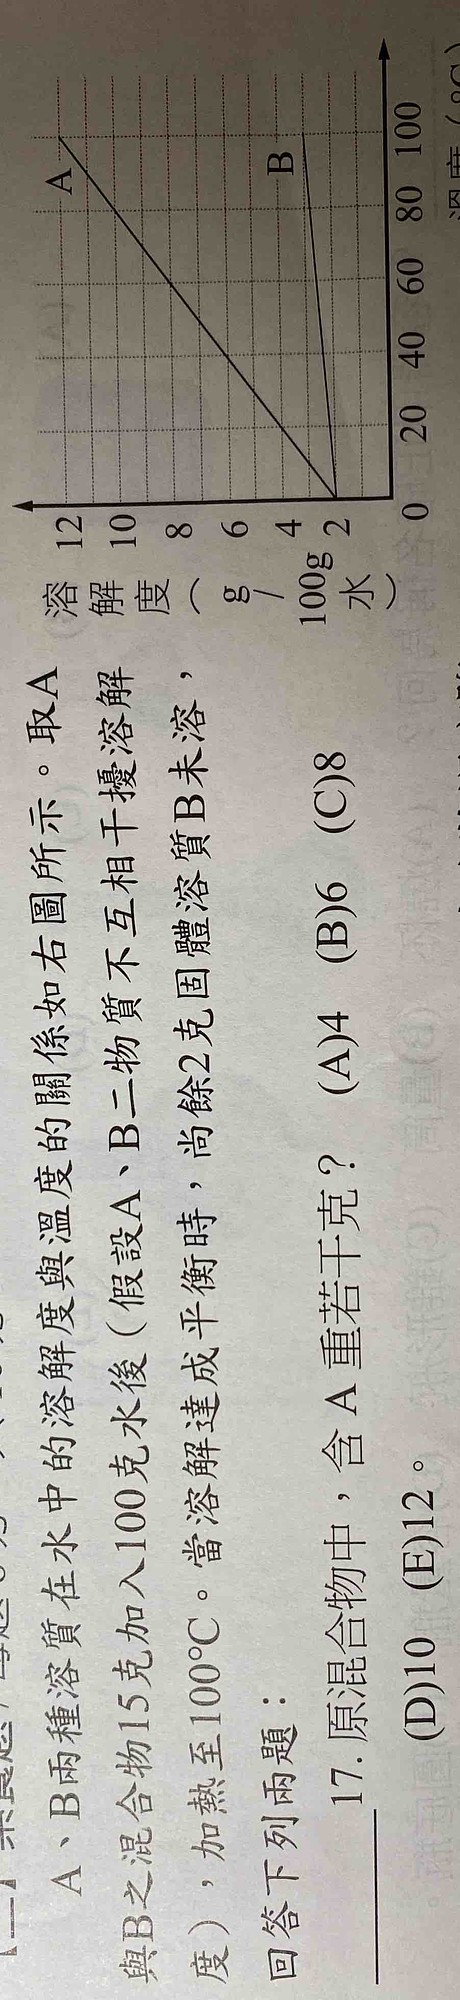 A、B兩種溶質在水中的溶解度與溫度的關係如右圖所示。取A
與B之混合物15克加入100克水後(假設A、B二物質不互相干擾溶解
度),加熱至100°C。當溶解達成平衡時,尚餘2克固體溶質B未溶,
回答下列兩題:
17.原混合物中,含A重若干克? (A)4 (B)6 (C)8
(D)10 (E)12。
溶解度(g/100g水)
12
10
8
6
4
2
0 20 40 60 80 100
A
B
溫度(°C)